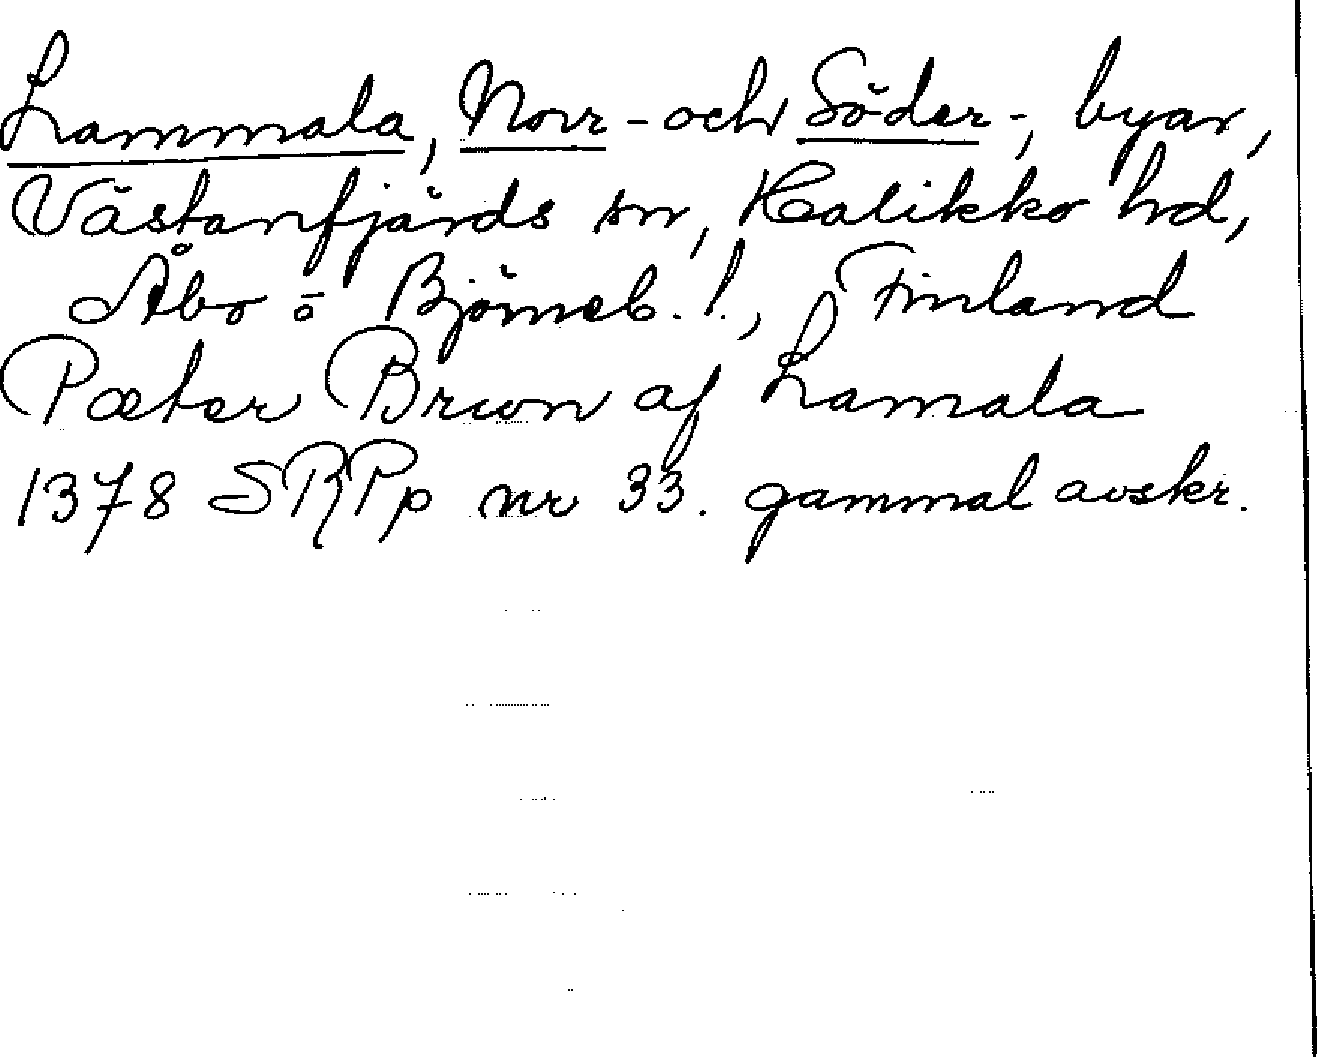 Lammala, Norr- och Söder-, byar,
Västanfjärds sn, Halikko hd,
Åbo o Björneb. l., Finland
Pæter Brwn af Lamala
1378 SRPp nr 33. gammal avskr.